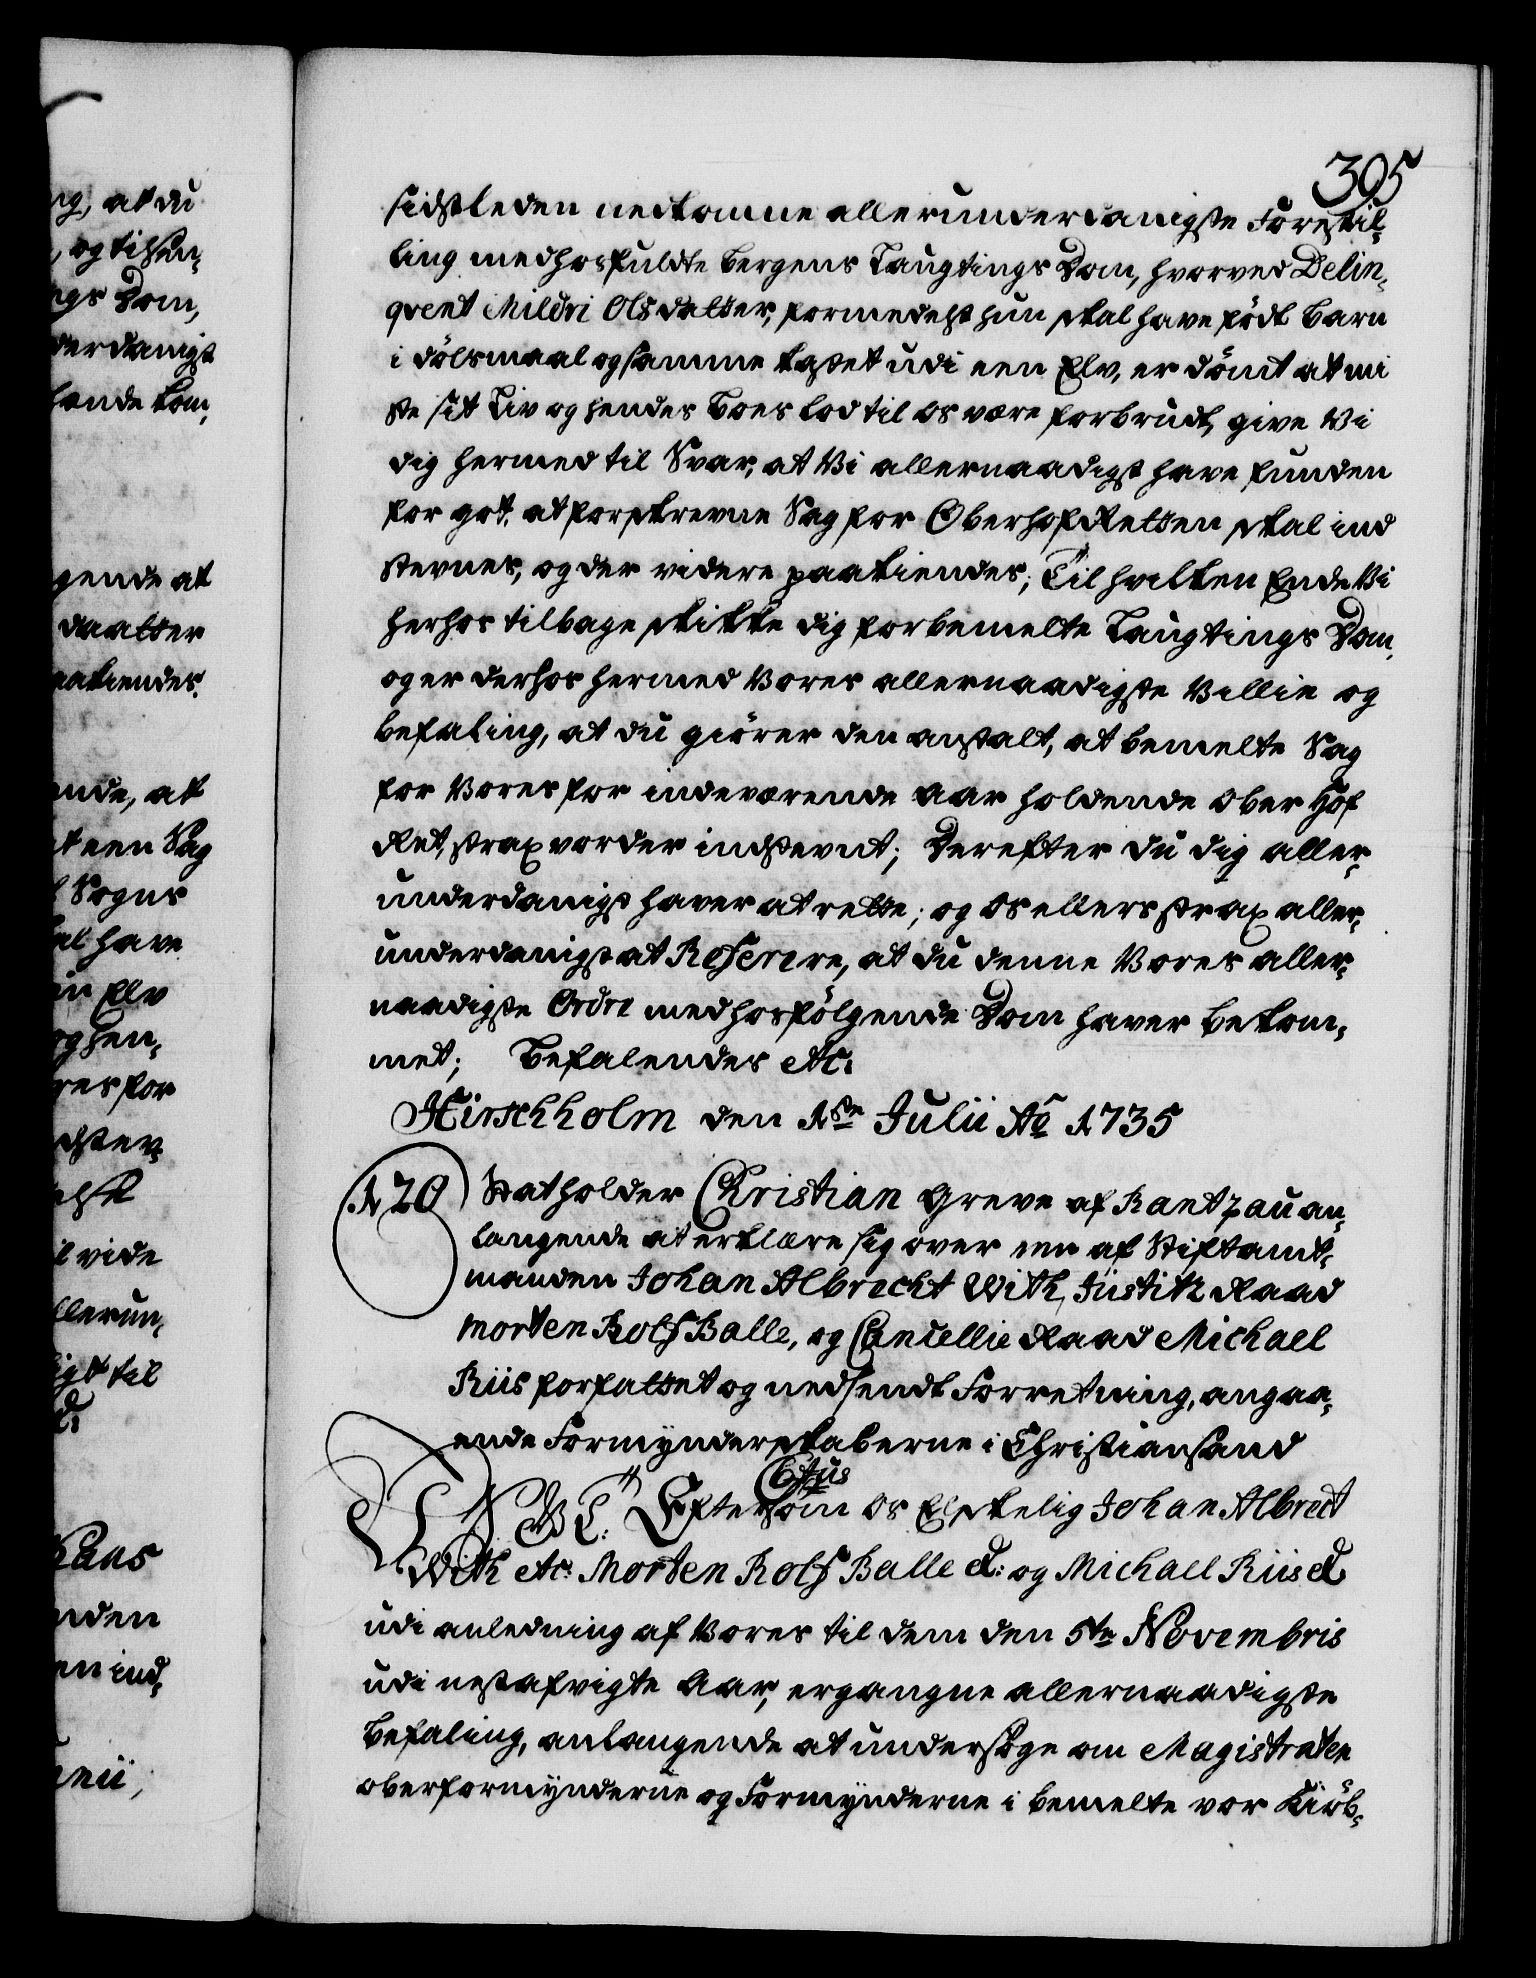 395
sidstleden nedkomne allerunderdanigste Forestil-
ling medhosfuldte Bergens Laugtings Dom, hvorved Delin-
qvent Mildri Olsdatter, formedelst hun skal have födt Barn
i dölsmaal og samme kastet udi een Elv, er dömt at mi
ste sit Liv og hendes Boes lod til Os være forbrudt, give Vi
dig hermed til Svar, at Vi allernaadigst have funden
for got, at forskrevne Sag for OberhofRetten skal ind
stevnes, og der videre paakiendes; Til hvilken Ende Vi
herhos tilbage skikke dig forbemelte Laugtings Dom,
og er derhos hermed Vores allernaadigste Villie og
befaling, at du giörer den anstalt, at bemelte Sag
for Vores for indeværende Aar holdende Ober Hof
Ret, strax vorder indstevnt; Derefter du dig aller-
underdanigst haver at rette; og Os ellers strax aller-
underdanigst at Referere, at du denne Vores aller-
naadigste Ordre medhosfölgende Dom haver bekom-
met; Befalendes etc:
Hirschholm den 1ste Julii Ao 1735
120 Statholder Christian Greve af Rantzau an-
langende at erklære sig over een af Stiftamt-
manden Johan Albrecht With, Justitz Raad
Morten Rolf Balle, og Cancellie Raad Michael
Riis forfattet og nedsendt Forretning, angaa-
ende Formynderskaberne i Christiansand
C6tus
V G T: Eftersom Os Elskelig Johan Albrect
With etc. Morten Rolf Balle etc: og Michael Riis etc
udi anledning af Vores til dem den 5te Novembris
udi nestafvigte Aar, ergangne allernaadigste
Befaling, anlangende at undersöge om Magistraten
oberformynderne og Formynderne i bemelte vor Kiöb-